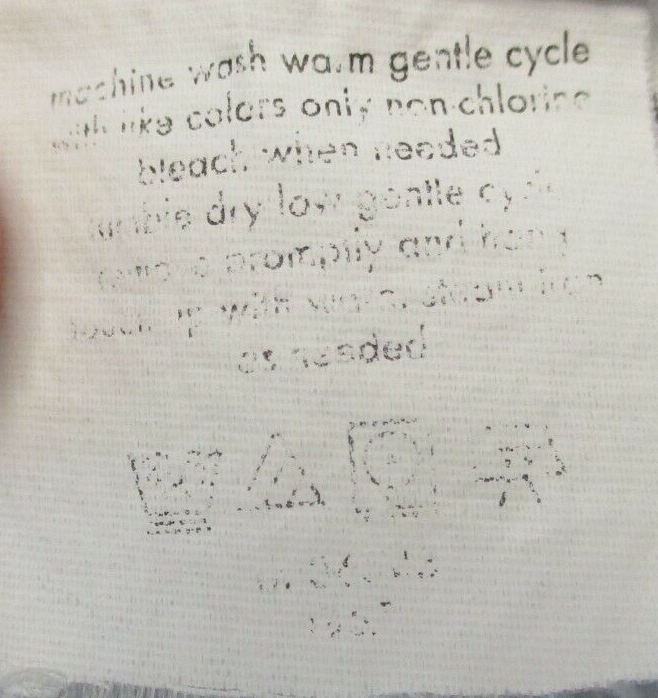 machine wash warm gentle cycle
with like colors only non-chlorine
bleach when needed
tumble dry low gentle cycle
remove promptly and hang
touch up with warm steam iron
as needed